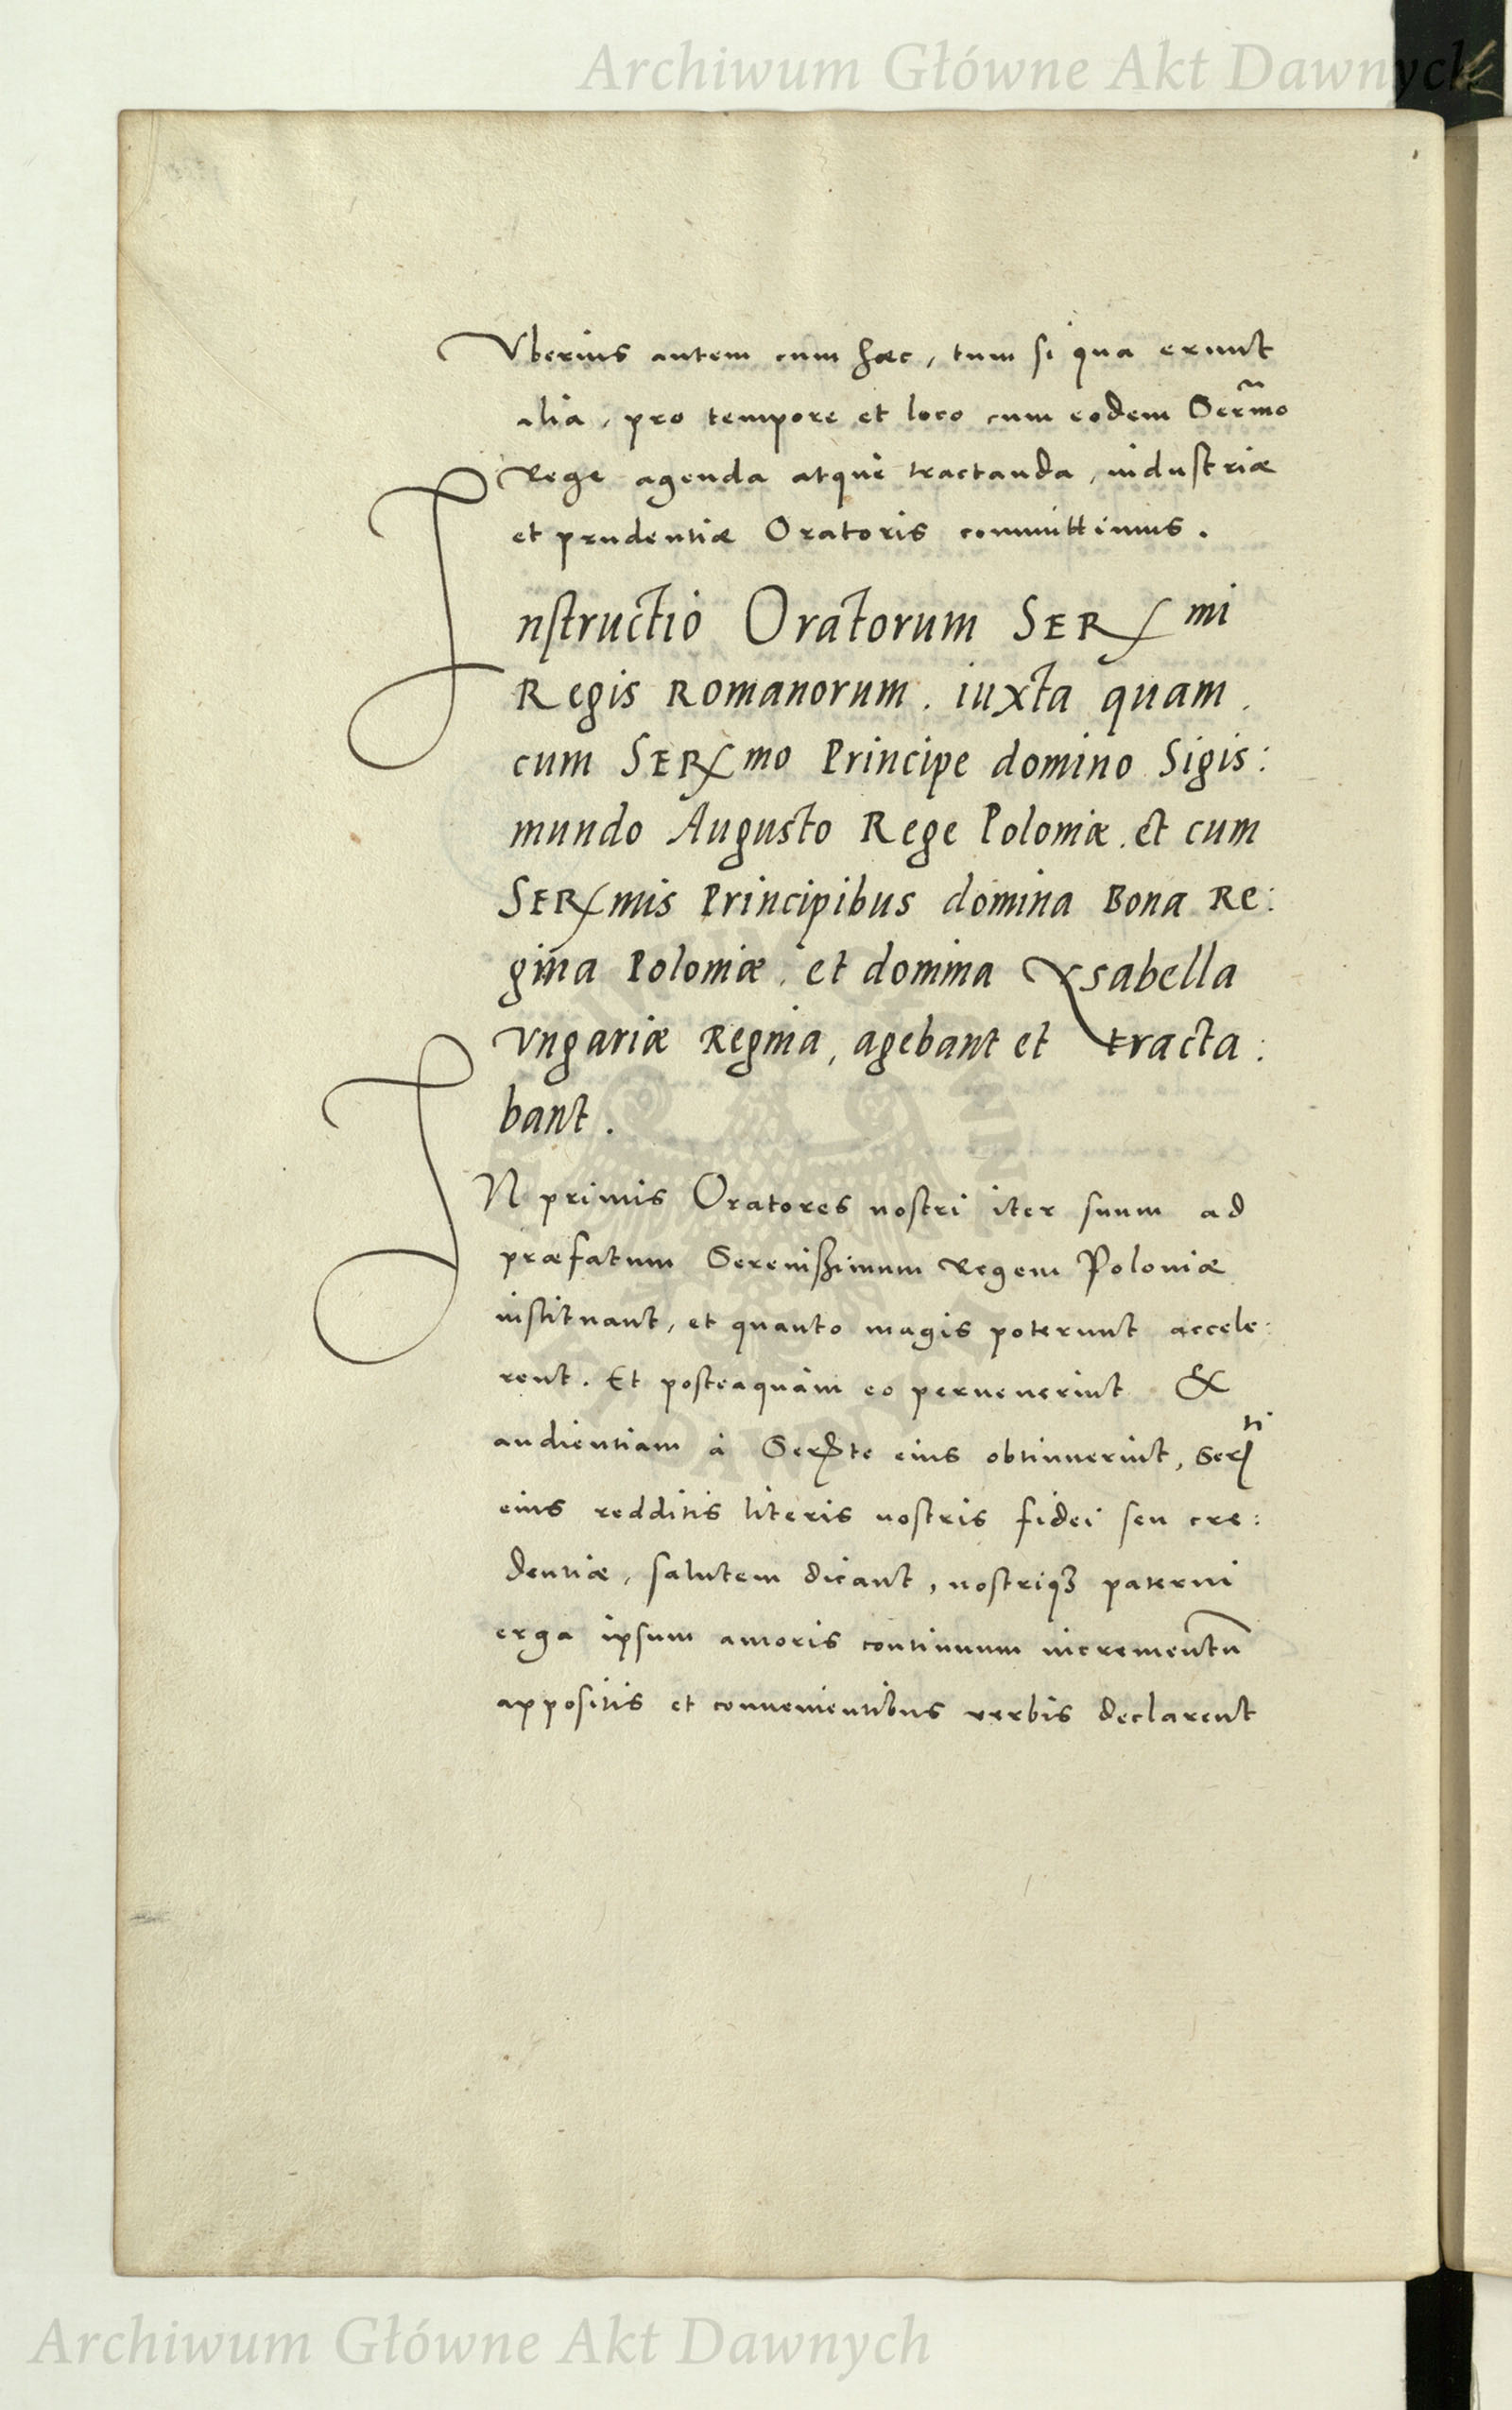 Archiwum Główne Akt Dawnych
Vberius autem cum hæc, tum si qua erunt
alia, pro tempore et loco cum eodem Serm̃o
Rege agenda atque tractanda, industriæ
et prudentiæ Oratoris committimus.
Instructio Oratorum SERmi
Regis Romanorum. iuxta quam.
cum SERmo Principe domino Sigis:
mundo Augusto Rege Poloniæ. et cum
SERmis Principibus domina Bona Re:
gina Poloniæ, et domina Ysabella
Vngariæ Regina, agebant et tracta:
bant.
IN primis Oratores nostri iter suum ad
præfatum Serenißimum Regem Poloniæ
instituant, et quanto magis poterunt accele:
rent. Et posteaquàm eo peruenerint &
audientiam à Serte eius obtinuerint, Serti
eius redditis literis nostris fidei seu cre:
dentiæ, salutem dicant, nostriqȝ paterni
erga ipsum amoris continuum incrementũ
appositis et conuenientibus verbis declarent
Archiwum Główne Akt Dawnych